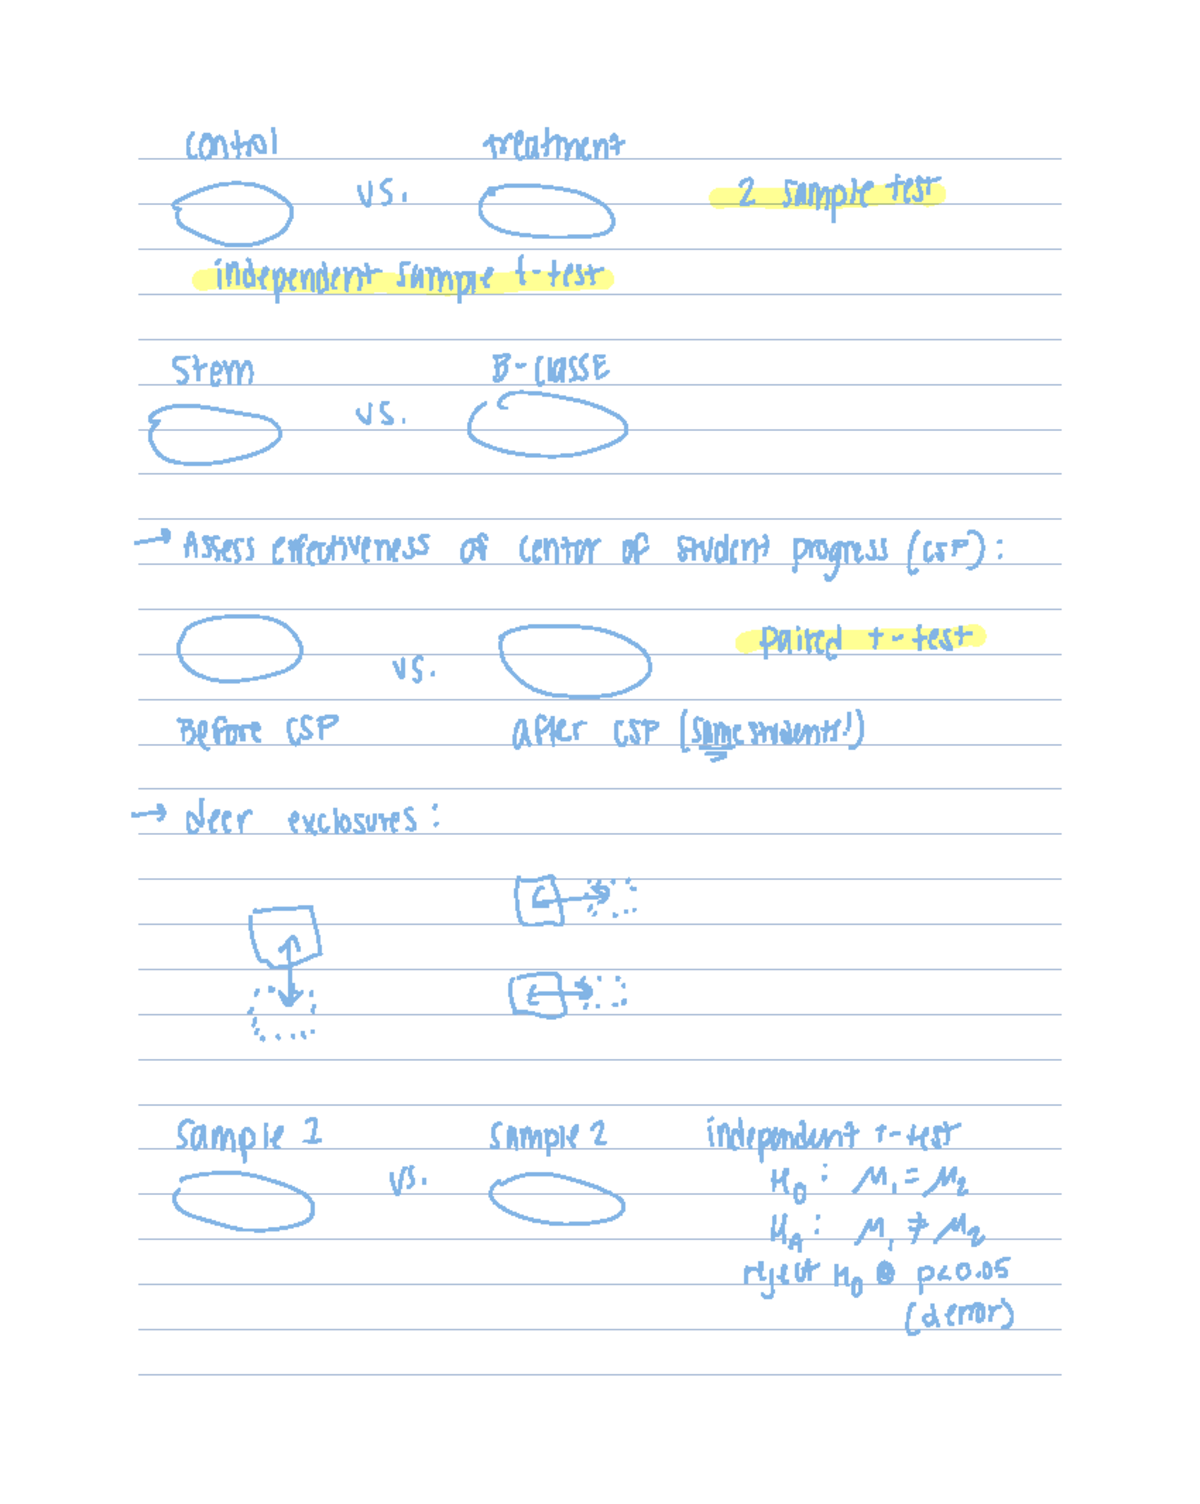 control treatment
vs. 2 sample test
independent sample t-test
Stem B-classE
vs.
→ Assess effectiveness of center of student progress (CSP):
paired t-test
vs.
Before CSP after CSP (same students!)
→ deer exclosures:
Sample 1 sample 2 independent t-test
vs. H₀: M₁ = M₂
H_A: M₁ ≠ M₂
reject H₀ @ p<0.05
(α error)